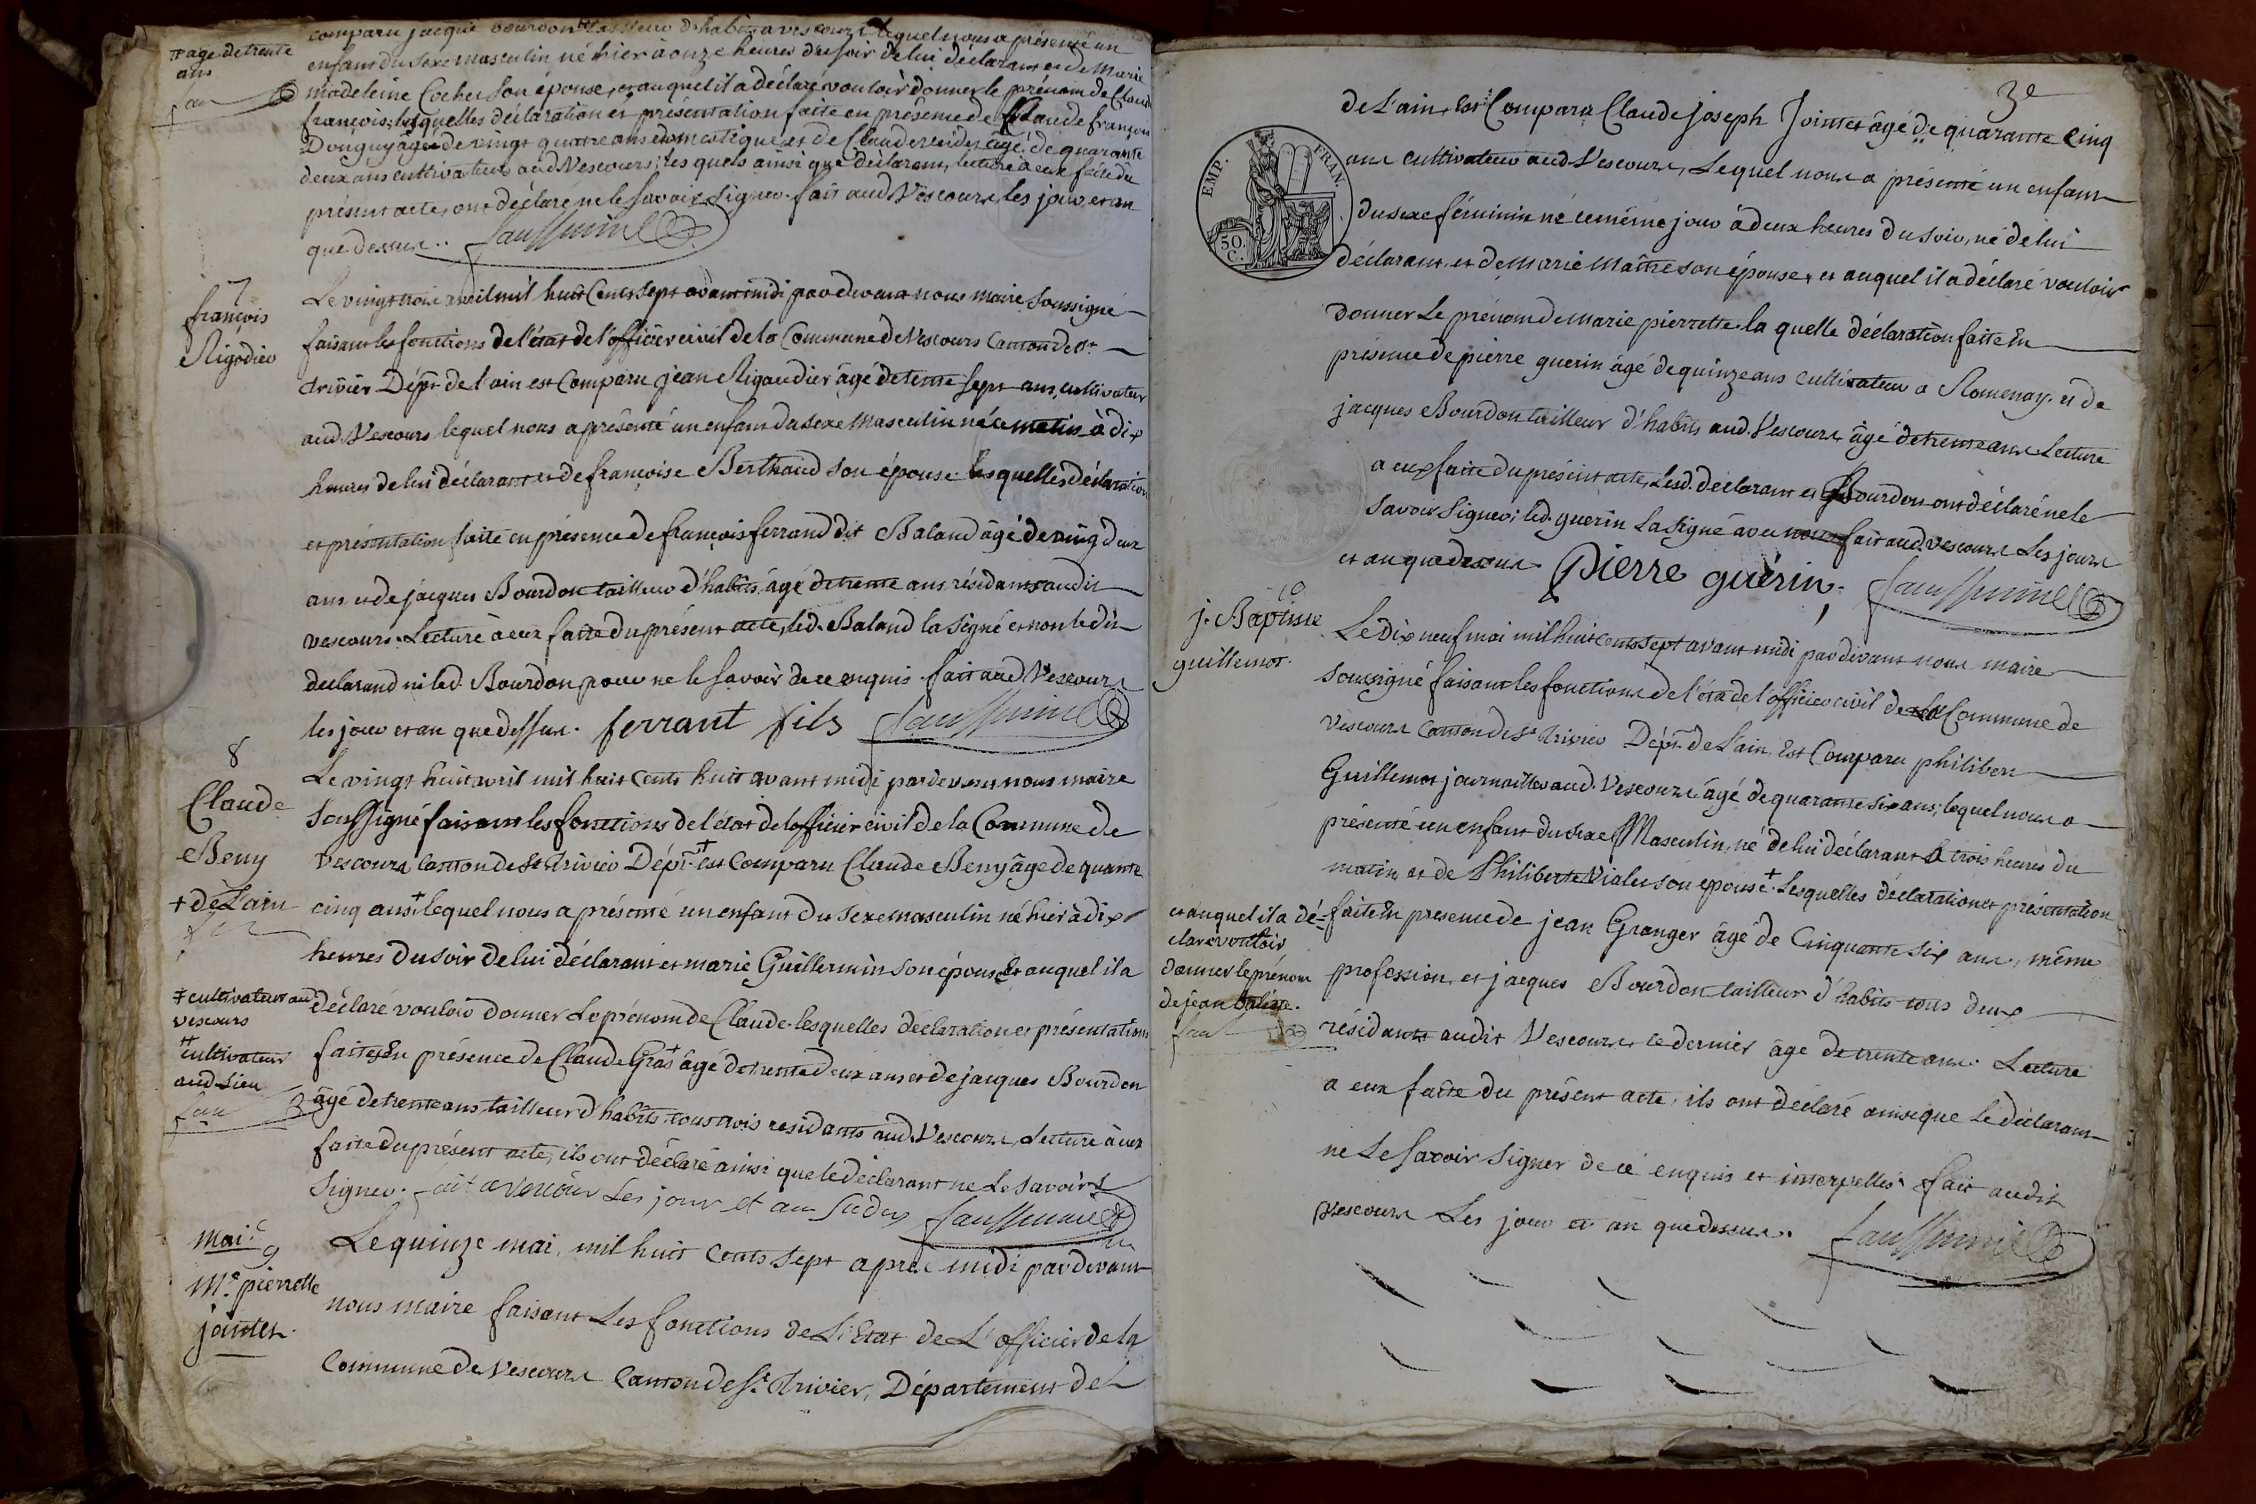 comparu jacque Bourdon tailleur d'habits a vescours lequel nous a présenté un
‡‡ agé de trente
ans
enfant du sexe masculin, né hier à onze heures du soir de lui déclarant et de Marie
madeleine Cochet son épouse, et auquel il a déclaré vouloir donner le prénom de Claude
françois; lesquelles déclaration et présentation faite en présence de Claude françois
Donguy âgé de vingt quatre ans domestique, et de Claude âgé de quarante
deux ans cultivateur aud Vescours; les quels ainsi que déclarant, lecture à eux faite du
présent acte, ont déclaré ne le savoir signer. fait aud Vescours, les jour et an
que dessus..
7
françois
Rigodier
Le vingt trois avril mil huit Cents sept avant midi pardevant nous maire soussigné
faisant les fonctions de l'état de l'officier civil de la Commune de Vescours Canton de St
trivier Dépt de l'ain est Comparu jean Rigaudier âgé de trente sept ans, cultivateur
aud. Vescours lequel nous a présenté un enfant du sexe masculin né ce matin à dix
heures de lui déclarant et de françoise Berthaud son épouse. lesquelles déclaration
et présentation faite en présence de françois ferrand dit Baland âgé de vingt deux
ans et de jacques Bourdon tailleur d'habits, âgé de trente ans résidants audit
vescours. Lecture à eux faite du présent acte, led. Baland la signé et non le dit
declarand ni led. Bourdon pour ne le savoir de ce enquis. fait aud Vescours
les jour et an que dessus. ferrant fils
8
Claude
Beny
Le vingt huit avril mil huit Cents huit avant midi pardevant nous maire
soussigné faisant les fonctions de l'état de l'officier civil de la Commune de
vescours canton de St Trivier Dépt. + est Comparu Claude Beny âgé de quarante
+ de L'ain
cinq ans ‡ lequel nous a présenté un enfant du sexe masculin né hier à dix
heures du soir de lui déclarant et marie Guillermin son épouse et auquel il a
‡ cultivateur aud
vescours
déclaré vouloir donner le prénom de Claude. lesquelles déclaration et présentation
‡‡ cultivateur
aud. Lieu
faites En présence de Claude Gras ‡ âgé de trente deux ans et de jacques Bourdon
âgé de trente ans tailleur d'habits tous trois residants aud. Vescours, Lecture à eux
faite du présent acte, ils ont déclaré ainsi que le déclarant ne Le savoir
signer. fait a vescours Les jour et an susdis
mai.
9
Me. pierrette
jointet.
Le quinze mai, mil huit Cents sept après midi pardevant
nous maire faisant Les fonctions de L'Etat de L'officier de la
commune de Vescours canton de St. Trivier, Département de
3e
EMP. FRAN.
50.
C.
de L'ain, Est Comparu Claude joseph Jointet âgé de quarante Cinq
ans cultivateur aud Vescours, Lequel nous a présenté un enfant
du sexe féminin né ce même jour à deux heures du soir, né de lui
déclarant et de Marie Maître son épouse, et auquel il a déclaré vouloir
donner Le prénom de marie pierrette. la quelle déclaration faite En
présence de pierre guerin âgé de quinze ans cultivateur a Romenay. et de
jacques Bourdon tailleur d'habits aud. Vescours âgé de trente ans Lecture
a eux faite du présent acte, Lesd. déclarant et Bourdon ont déclaré ne le
savoir signer; led. guerin La signé avec nous fait aud. vescours Les jours
et an que dessus. Pierre guérin.
10
j. Baptiste
guillemot.
Le Dix neuf mai mil huit Cents sept avant midi pardevant nous maire
soussigné faisant les fonctions de l'état de l'officier civil de la Commune de
vescours Canton de St. Trivier Dépt. de L'ain. Est Comparu philibert
Guillemot journaillier aud. Vescours âgé de quarante six ans; lequel nous a
présenté un enfant du sexe Masculin, né de lui déclarant à trois heures du
matin et de Philiberte Vialet son epouse +. Lesquelles déclaration et présentation
et auquel il a dé-
claré vouloir
donner le prénom
de jean Batiste.
faite En presence de jean Granger âgé de Cinquante six ans, même
profession, et jacques Bourdon tailleur d'habits tous deux
résidants audit Vescours, ce dernier âgé de trente ans. Lecture
a eux faîte du présent acte, ils ont déclaré ainsi que Le déclarant
ne Le savoir signer de cé enquis et interpellés fait audit
Vescours Les jour et an que dessus.